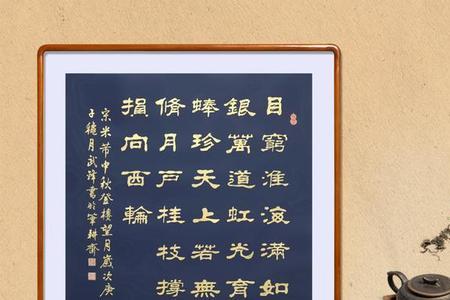 目窮淮海滿如
銀萬道虹光育
蜯珍天上若無
脩月戶桂枝撐
損向西輪
宋米芾中秋登樓望月歲次庚
子穐月武鋒書於筆耕齋